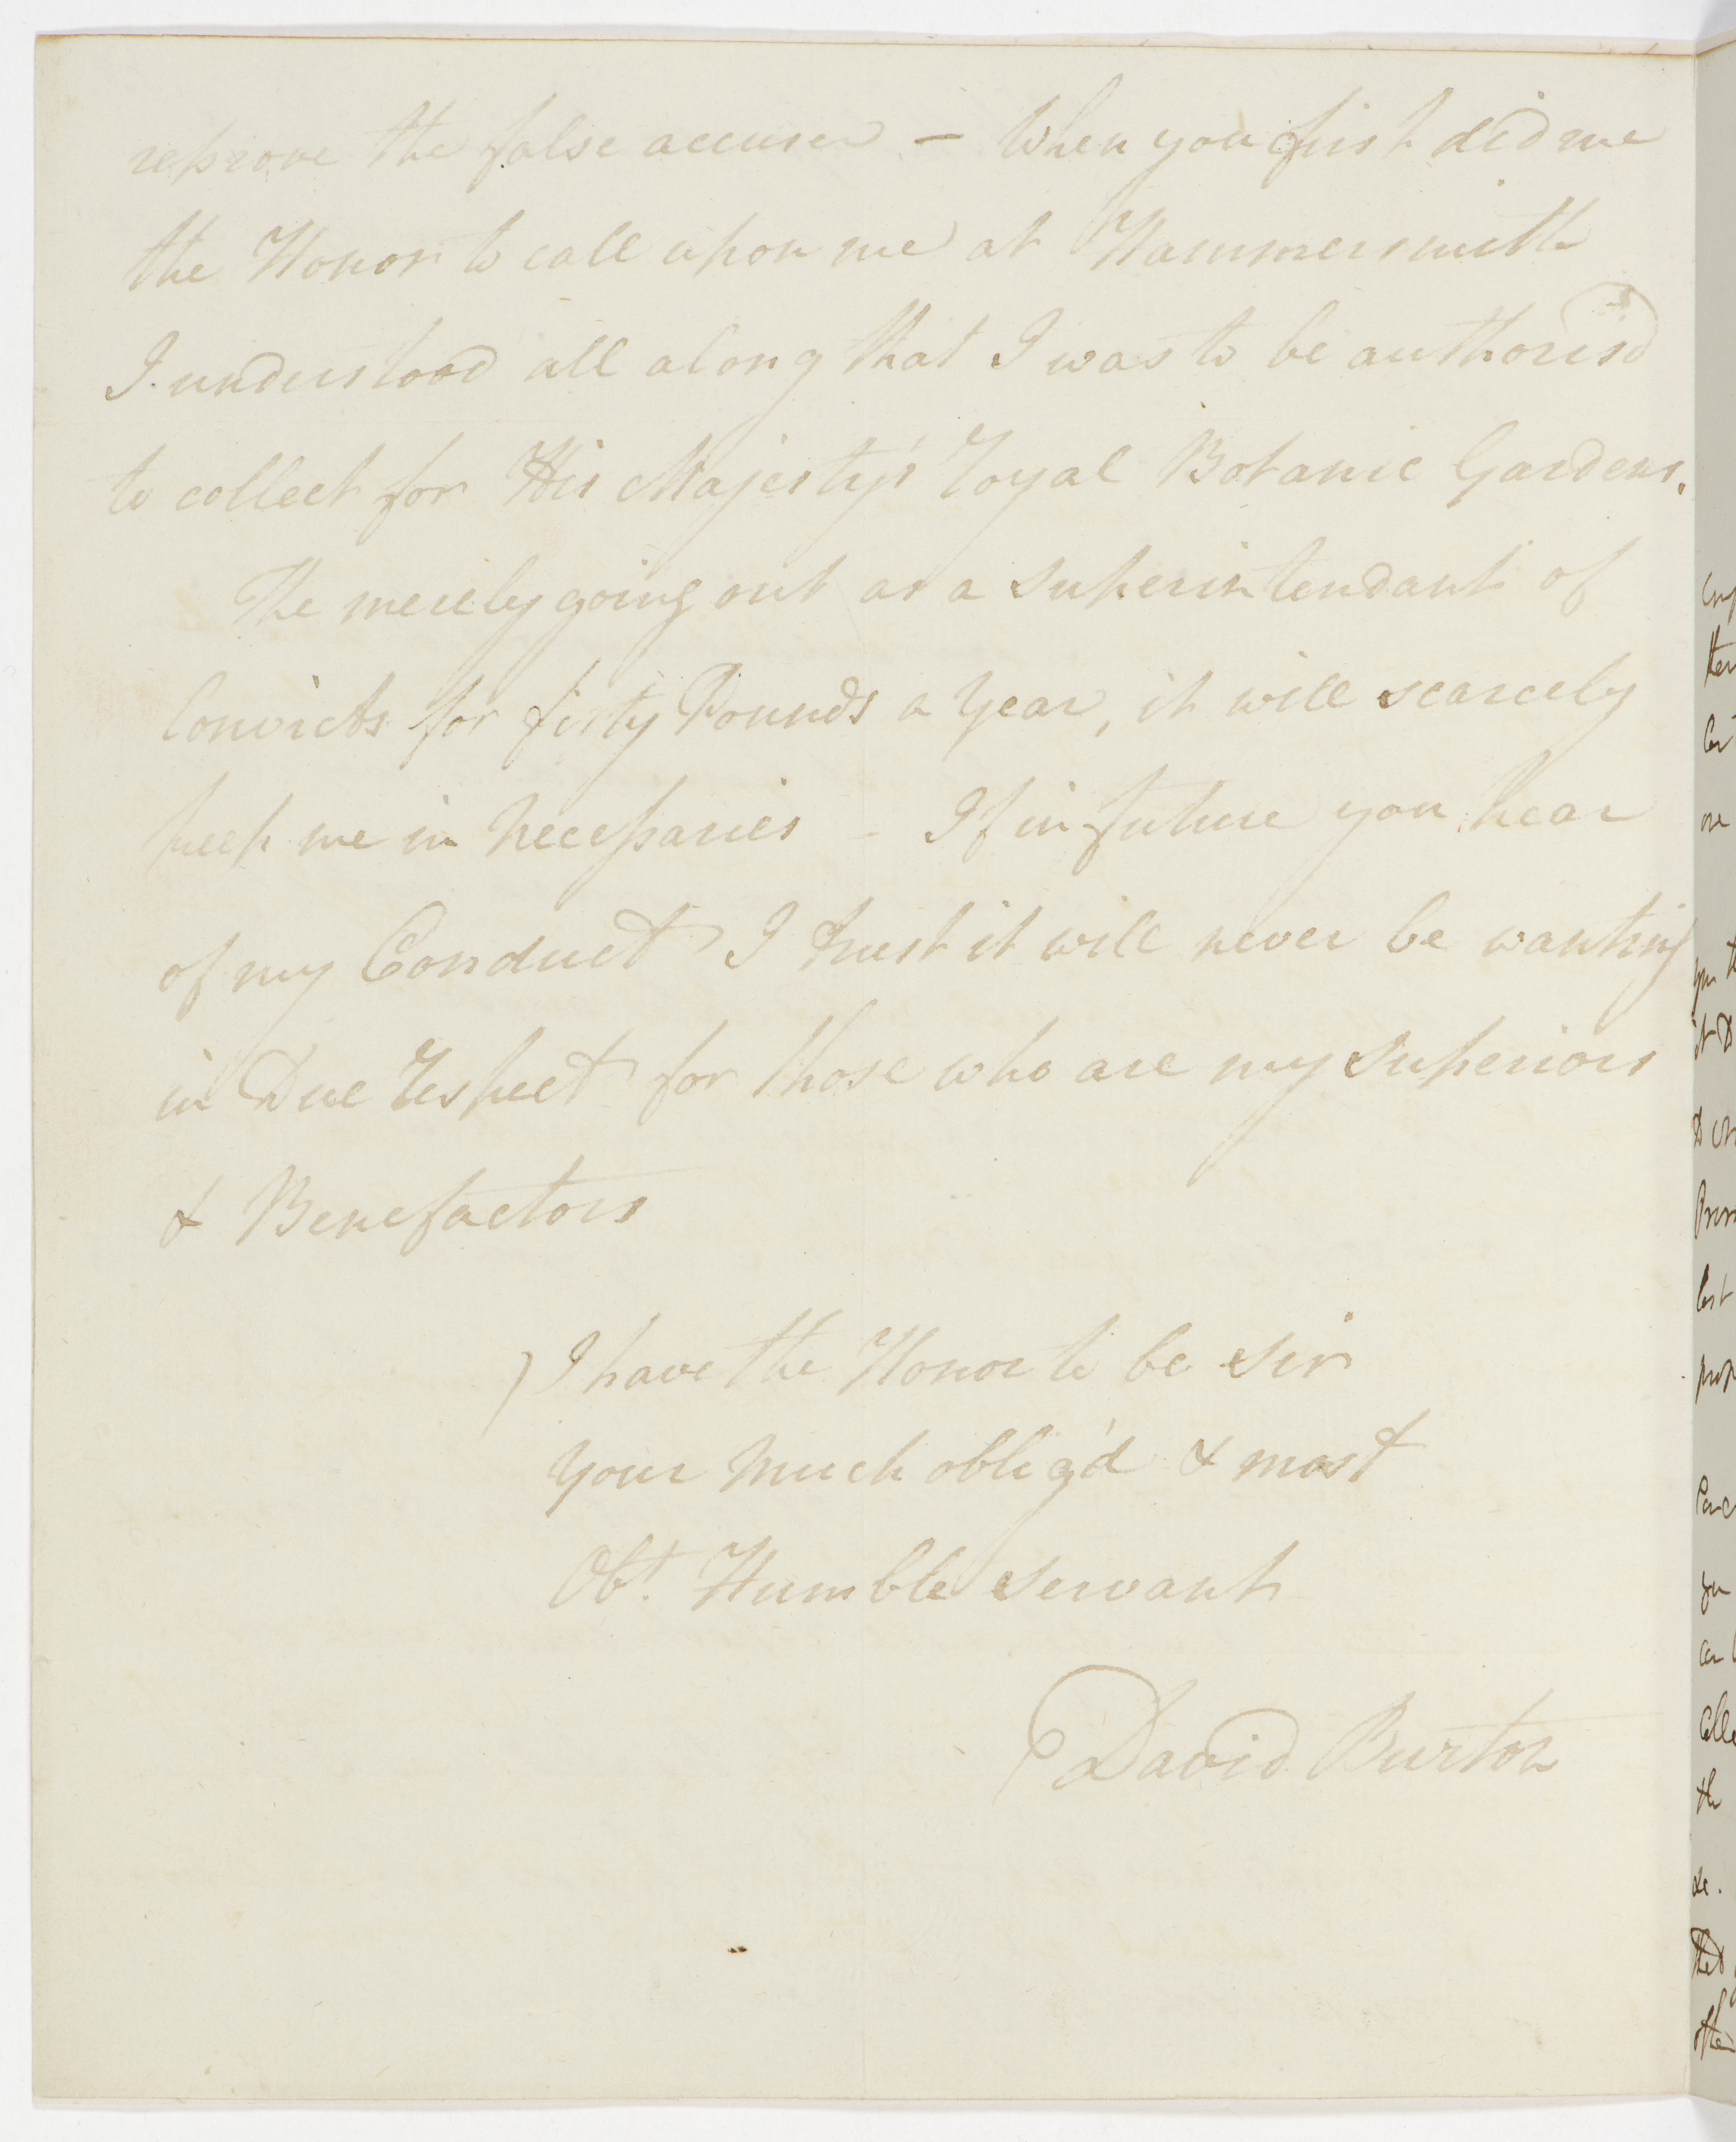 reprove the false accuser – When you first did me
the Honor to call upon me at Hammersmith
I understood all along that I was to be authoris'd
to collect for His Majesty's Royal Botanic Gardens.
The merely going out as a Superintendant of
Convicts for forty Pounds a Year, it will scarcely
keep me in Necessaries – If in future you hear
of my Conduct I trust it will never be wanting
in Due respect for those who are my Superiors
& Benefactors
I have the Honor to be Sir
Your Much oblig'd & most
Obt. Humble Servant
David Burton